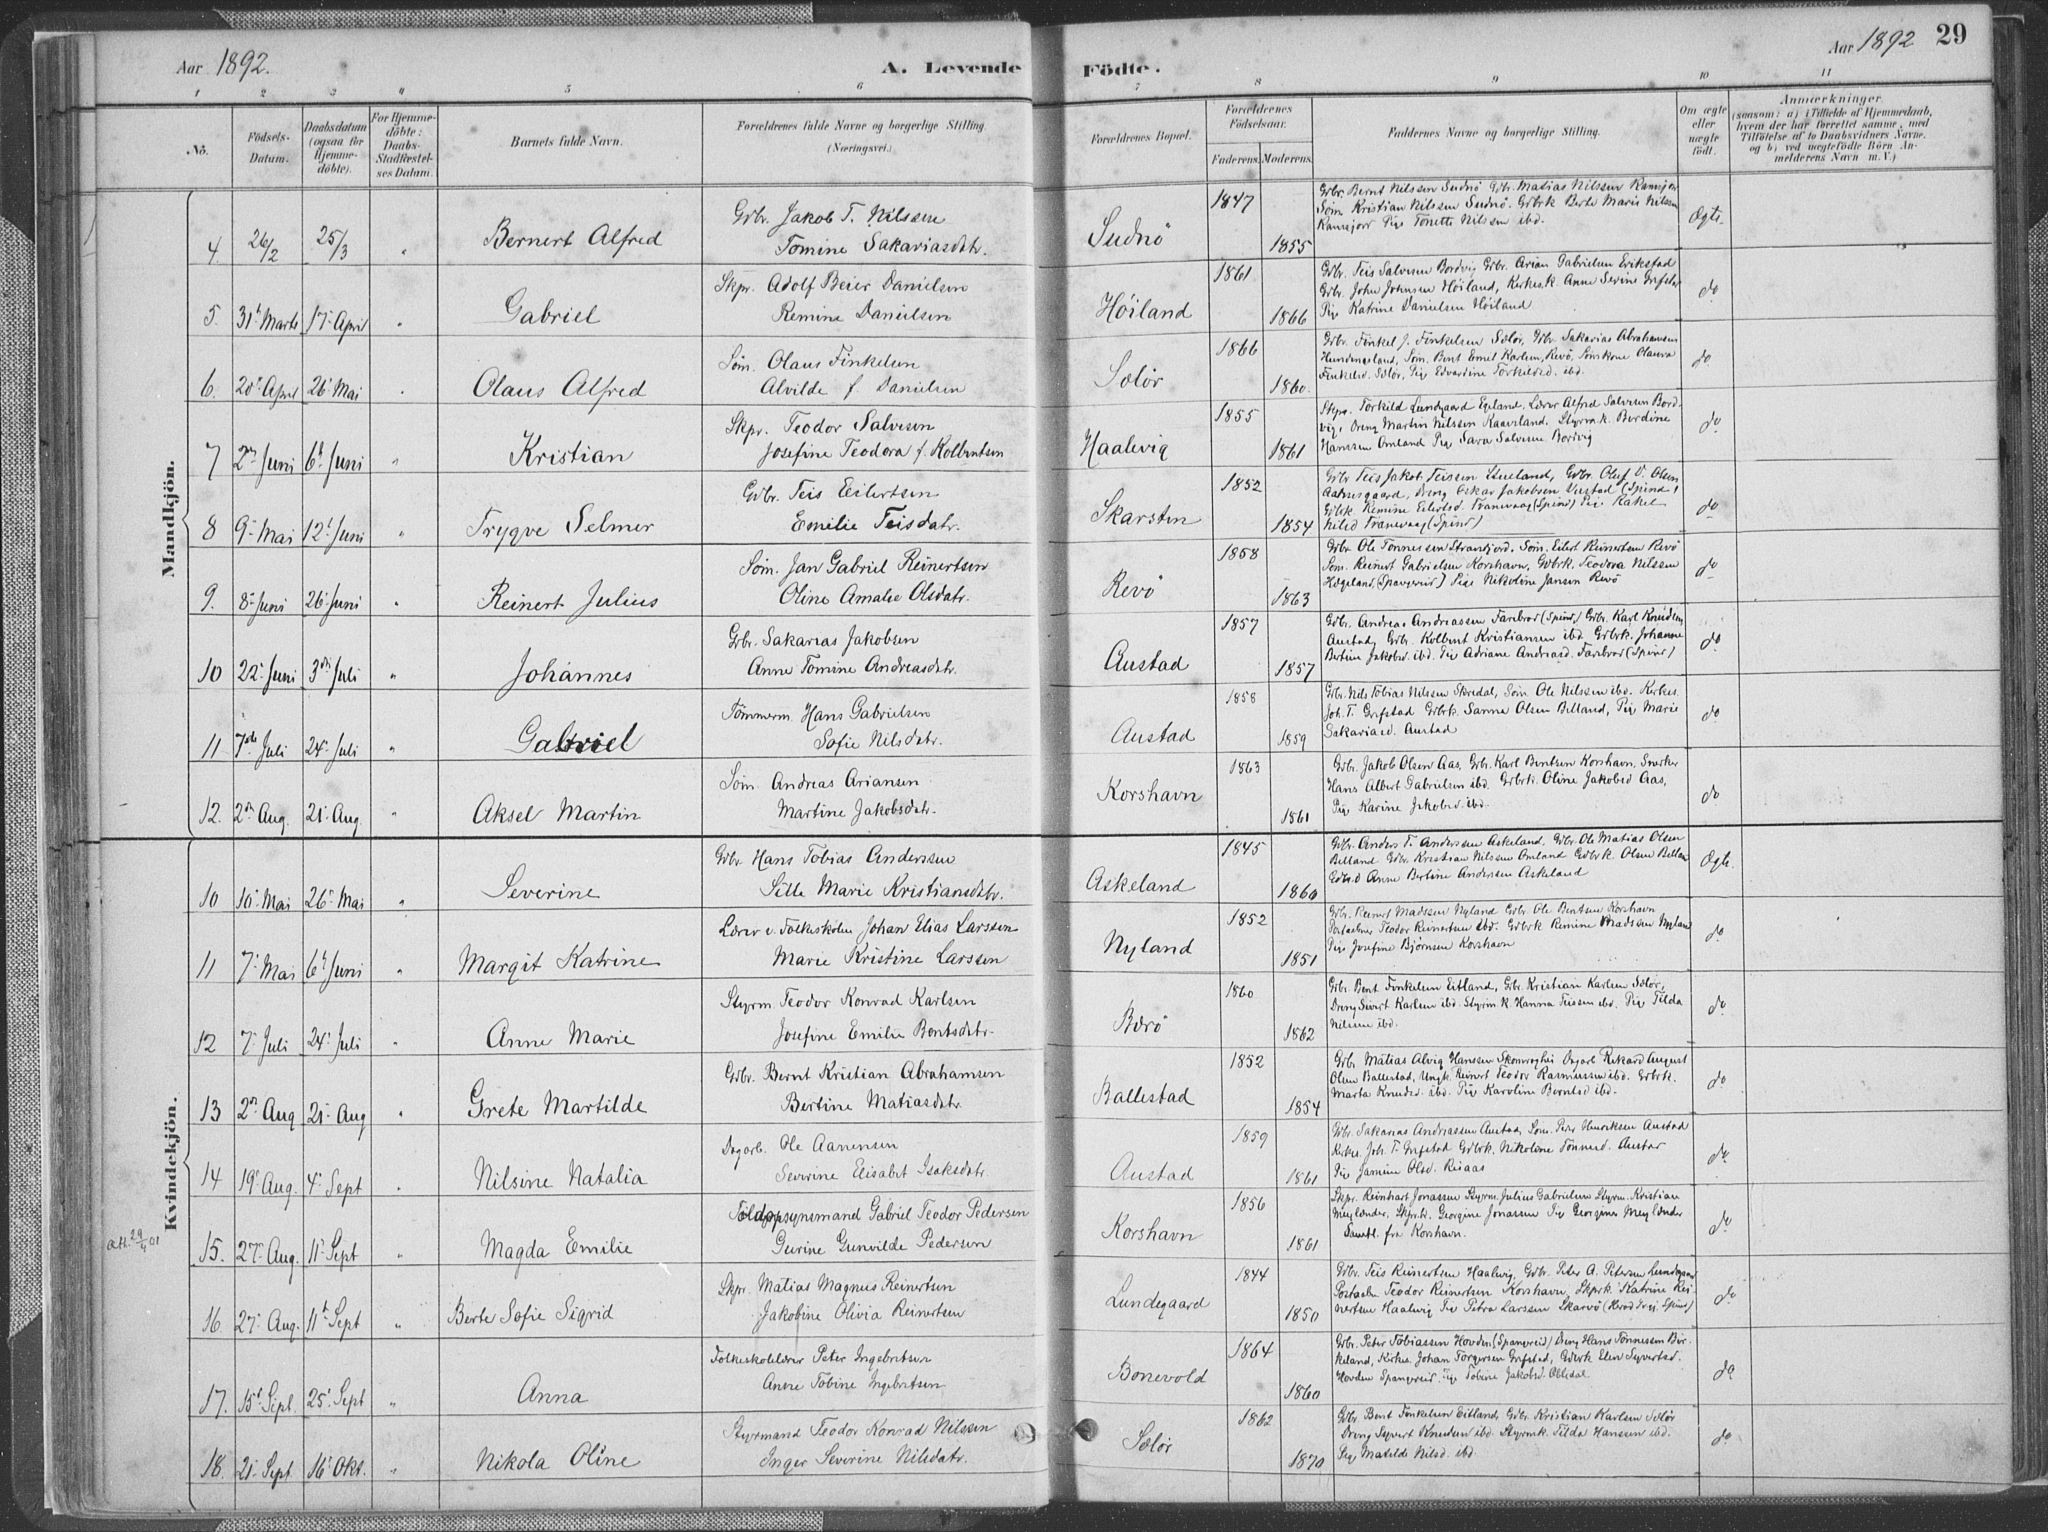 Aar 1892.
A. Levende Födte.
Aar 1892
29
1 2 3 4 5 6 7 8 9 10 11
No.
Födsels-Datum.
Daabsdatum (ogsaa for Hjemme-döbte).
For Hjemme-döbte: Daabs-Stadfæstel-ses Datum.
Barnets fulde Navn.
Forældrenes fulde Navne og borgerlige Stilling (Næringsvei.)
Forældrenes Bopæl.
Forældrenes Födselsaar.
Faderens. Moderens.
Faddernes Navne og borgerlige Stilling.
Om ægte eller uægte födt.
Anmærkninger
(saasom: a) i Tilfælde af Hjemmedaab, hvem der har forrettet samme, med Tilföielse af to Daabsvidners Navne. og b) ved uægtefödte Börn An-melderens Navn m. V.)
Mandkjön.
4. 26/2 25/3 " Bernert Alfred
Gbr. Jakob T. Nilssen
Tomine Sakariasdtr.
Sudnö 1847 1855
Gbr. Bernt Nilssen Sudnö Gbr. Matias Nilssen
Söm. Kristian Nilssen Sudnö. Gdbrk Berte Marie Nilssen
Pige Tonette Nilssen ibd.
Ægte.
5. 31' Marts 17' April " Gabriel
Skpr. Adolf Beier Danielsen
Remine Danielsen
Höiland 1861 1866
Gbr. Teis Salvesen Bordvig Gbr. Arian Gabrielsen Erikstad
Gbr. John Johnsen Höiland, Kirkes.k. Anne Sevine Grefstad
Pige Katrine Danielsen Höiland
do
6. 20' April 26' Mai " Olaus Alfred
Söm. Olaus Finkelsen
Alvilde f. Danielsen
Selör 1866 1860.
Gbr. Finkel J. Finkelsen Selör, Gbr. Sakarias Abrahamsen
Söm. Bent Emil Karlsen, Revö, Sömskone Olava
Finkelsd. Selör, Pige Edvardine Torkildsd. ibd.
do
7 2' Juni 6' Juni " Kristian
Skpr. Teodor Salvesen
Josefine Teodora f. Kolbentsen
Haalevig 1855 1861
Skpr. Torkild Lundegaard Egeland. Lærer Alfred Salvesen Bord-
vig, Dreng Martin Nilssen Kaaveland. Styrm.k. Berdine
Hanssen Omland Pige Sara Salvesen Bordvig
do
8 9' Mai 12' Juni " Trygve Selmer
Gdbr. Teis Eilertsen
Emilie Teisdatr.
Skarsten 1852 1854
Gdbr Teis Jakob Teissen Stueland, Gdbr. Oluf V. Olsen
Dreng Oskar Jakobsen (Spind)
Gdbrk. Remine Eilertsd. Tranevaag (Spind) Pige Rakel
Nilsd Tranevaag (Spind)
do
9. 8' Juni 26' Juni " Reinert Julius
Söm. Jan Gabriel Reinertsen
Oline Amalie Olsdatr.
Revö 1858 1863
Gdbr Ole Tonnessen Strandjord. Söm. Eilert Reinertsen Revö
Söm. Reinert Gabrielsen Korshavn, Gdbrk. Teodora Nilssen
Hægeland (Spangereid) Pige Nikoline Jansen Revö
do
10 22' Juni 3' Juli " Johannes
Gbr. Sakarias Jakobsen
Anne Tomine Andreasdtr.
Austad 1857 1857
Gdbr. Andreas Andreassen Farebrod (Spind) Gbr. Karl Knudsen
Austad, Gbr. Kolbent Kristiansen ibd Gdbrk. Johanne
Bertine Jakobsd. ibd. Pige Adriane Andreasd. Farebrod (Spind)
do
11 7de Juli 24' Juli " Gabriel
Tömmerm. Hans Gabrielsen
Sofie Nilsdatr.
Austad 1858 1859
Gdbr. Nils Tobias Nilssen Skredal, Söm. Ole Nilssen ibd. Kirkes.
Joh. T. Grefstad Gdbrk. Sanne Olsen Belland, Pige Marie
Sakariasd. Austad
do
12. 2' Aug. 21' Aug. " Aksel Martin
Söm. Andreas Ariansen
Martine Jakobsdatr.
Korshavn 1863 1861
Gbr. Jakob Olsen Aas, Gbr. Karl Bentsen Korshavn, Snerker
Hans Albert Gabrielsen ibd. Gdbrk. Oline Jakobsd Aas,
Pige Karine Jakobsd ibd.
do
Kvindekjön.
10 10' Mai 26' Mai " Severine
Gdbr. Hans Tobias Anderssen
Sille Marie Kristiansdtr.
Askeland 1845 1860
Gdbr. Anders T. Anderssen Askeland, Gdbr. Ole Matias Olsen
Belland Gdbr. Kristian Nilssen Omland Gdbrk. Olsen Belland
Anne Bertine Andersen Askeland
Ægte.
11 7' Mai 6' Juni " Margit Katrine
Lærer v. Folkeskolen Johan Elias Larssen
Marie Kristine Larssen
Nyland 1852 1851
Gdbr. Reinert Madssen Nyland Gdbr Ole Bentsen Korshavn
Postaabner Teodor Reinertsen ibd. Gdbrk Remine Madssen Nyland
Pige Josefine Björnsen Korshavn
do
12 7' Juli 24' Juli " Anne Marie
Styrm. Teodor Konrad Karlsen
Josefine Emilie Bentsdatr.
Berö 1860 1862
Gbr. Bent Finkelsen Eitland, Gbr. Kristian Karlsen Selör,
Dreng Sivert Karlsen ibd. Styrm.k. Hanna Teissen ibd. Pige Tilda
Nilsen ibd.
do
13 2' Aug 21' Aug " Grete Martilde
Gdbr. Bernt Kristian Abrahamsen
Bertine Matiasdatr.
Ballestad 1852 1854
Gbr. Matias Alvig Hanssen Dagarb. Rikard August
Olsen Ballestad, Ungk. Reinert Teodor Rasmussen ibd. Gdbrk.
Marta Knudsd. ibd. Pige Karoline Berntsd ibd.
do
14 19' Aug. 4' Sept " Nilsine Natalia
Dagarb. Ole Aanensen
Severine Elisabet Isaksdatr.
Austad 1859 1861
Gdbr. Sakarias Andreassen Austad, Söm. Peder Henriksen Austad
Kirkes. Joh. T. Grefstad Gdbrk. Nikolene Tönnesd. Austad
Pige Jamine Olsd. Risaas
do
att. 29/4 01
15. 27' Aug. 11' Sept " Magda Emilie
Toldopsynsmand Gabriel Teodor Pedersen
Gurine Gunvilde Pedersen
Korshavn 1856 1861
Skpr. Reinhart Jonassen Styrm. Julius Gabrielsen Styrm. Kristian
Meylænder, Skpr.k. Georgine Jonassen Pige Georgine Meylænder
Samtl. fra Korshavn.
do
16. 27' Aug. 11' Sept " Berte Sofie Sigrid
Skpr. Matias Magnus Reinertsen
Jakobine Olivia Reinertsen
Lundegaard 1844 1850
Gdbr. Teis Reinertsen Haalevig, Gdbr. Peter A. Petersen Lundegaard
Postaabn Teodor Reinertsen Korshavn, Skprk Katrine Rei-
nertsen Haalevig Pige Petra Larssen Skarvö
do
17. 15' Sept. 25' Sept " Anna
Folkeskolelærer Peter Ingebretsen
Anne Tobine Ingebretsen
Bonevold 1864 1860
Gbr. Peter Tobiassen Hovden (Spangereid) Dreng Hans Tönnessen Bir-
keland, Kirkes. Johan Torgersen Grefstad, Gdbrk Elen Syvertsd.
Hovden Spangereid. Pige Tobine Jakobsd.
do
18. 21' Sept. 16' Okt. " Nikola Oline
Styrmand Teodor Konrad Nilssen
Inger Severine Nilsdatr.
Selör 1862 1870
Gdbr. Bent Finkelsen Eitland, Gdbr. Kristian Karlsen Selör
Dreng Syvert Knudsen ibd. Styrmk. Tilda Hanssen ibd.
Pige Matilde Nilsd. ibd.
do